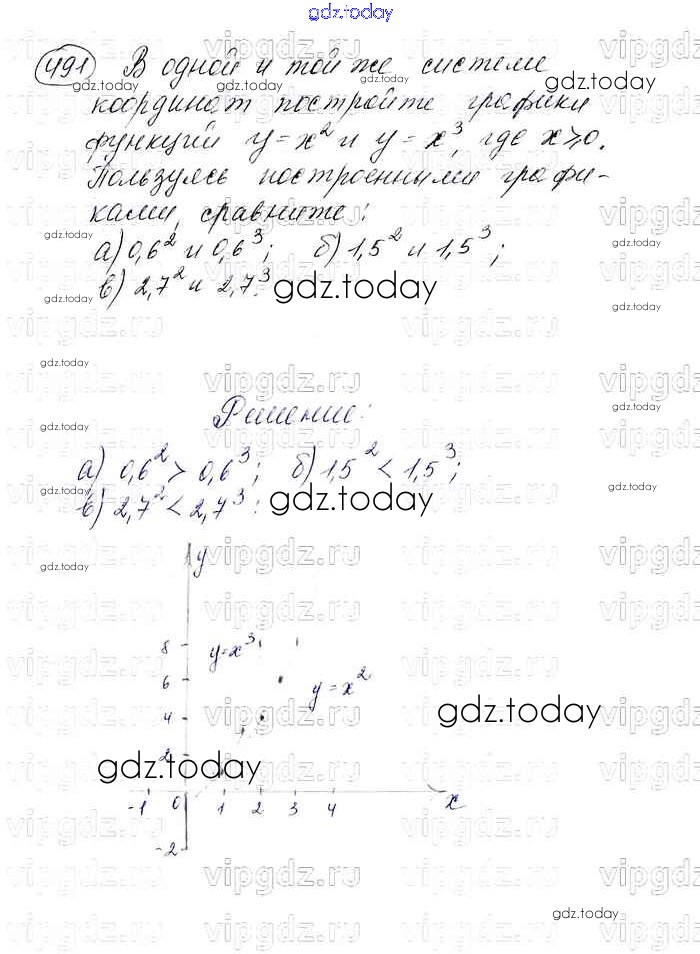 gdz.today
491 В одной и той же системе
координат постройте графики
функций y=x² и y=x³, где x⩾0.
Пользуясь построенными графи-
ками, сравните:
а) 0,6² и 0,6³; б) 1,5² и 1,5³;
в) 2,7² и 2,7³.
gdz.today
Решение:
а) 0,6² > 0,6³; б) 1,5² < 1,5³;
в) 2,7² < 2,7³.
gdz.today
y
8 y=x³
6 y=x²
4
gdz.today
2
gdz.today
-1 0 1 2 3 4 x
-2
vipgdz.ru
gdz.today